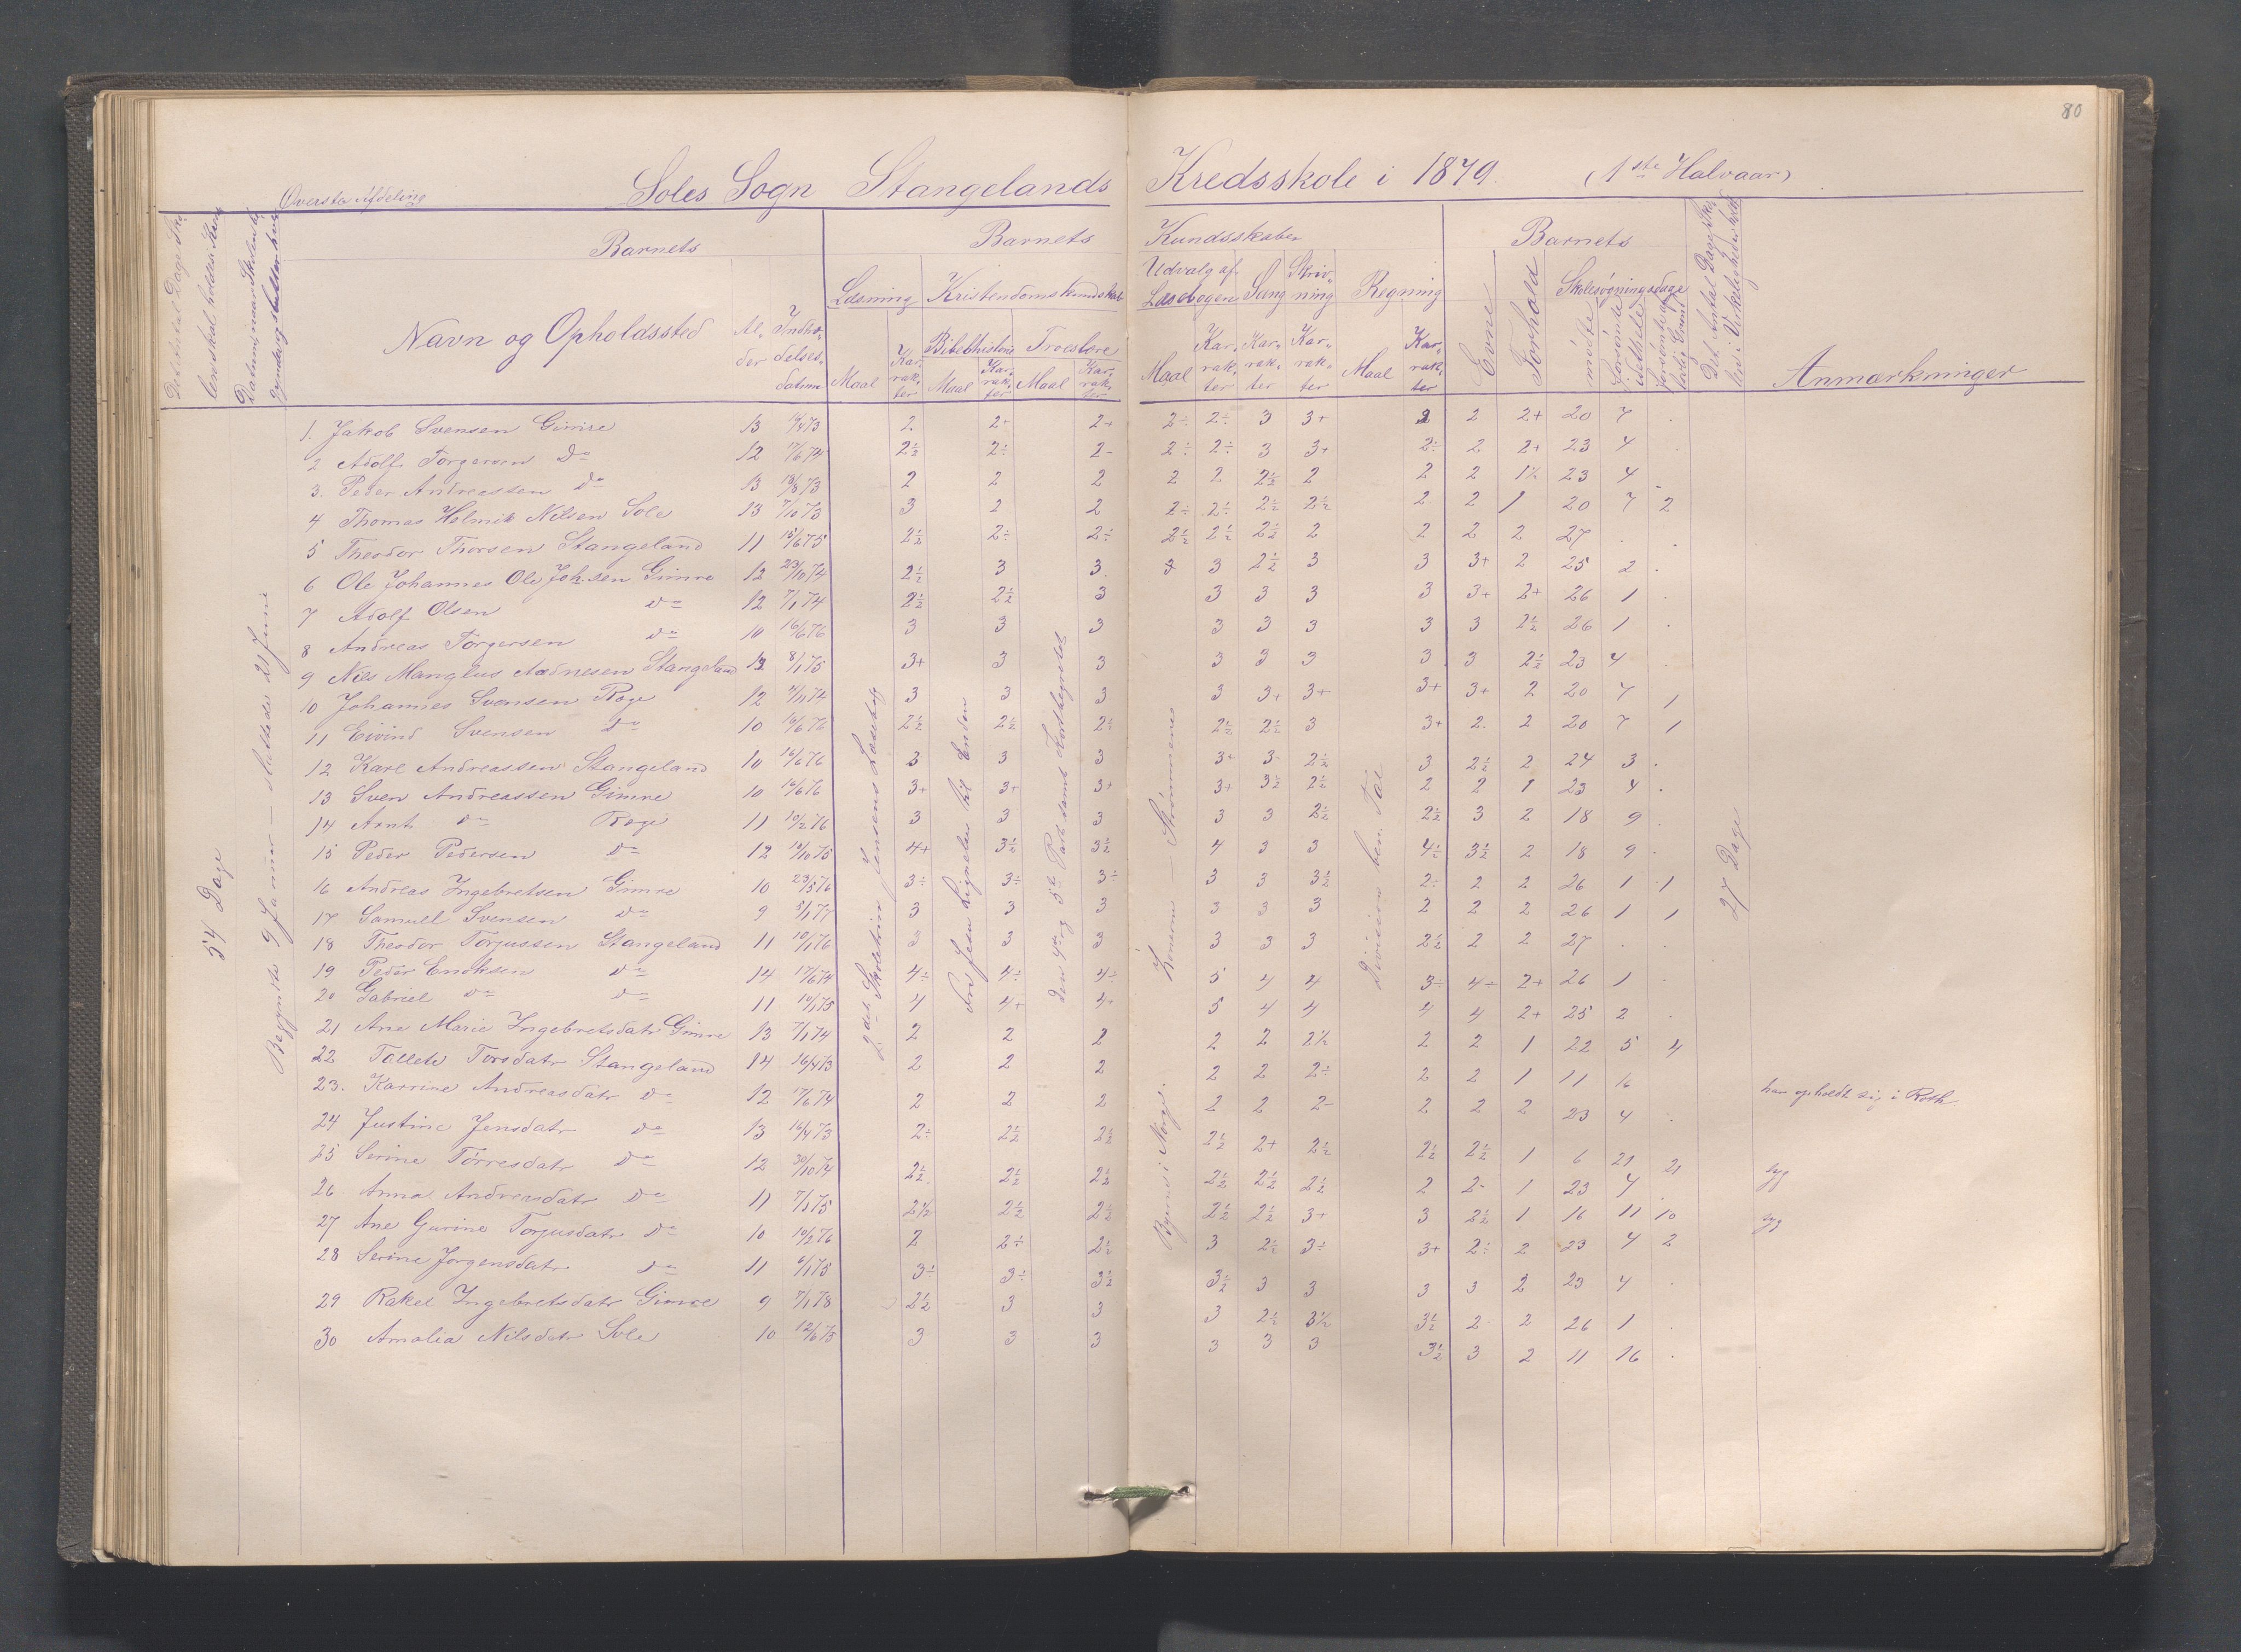 80
Øverste Afdeling
Soles Sogn Stangelands Kredsskole i 1879. (1ste Halvaar)
Barnets
Barnets Kundsskaber
Barnets
Navn og Opholdssted
Al-der
Indtrædelsesdatum
Læsning
Kristendomskundskab
Bibelhistorie
Troeslære
Udvalg af Læsebogen
Sang
Skrivning
Regning
Evne
Forhold
Skolesøgningsdage
mødte
Maal
Karakter
Anmærkninger
54 Dage
Begyndte 9 Januar — sluttede 21 Juni
2den Skoletrin Jensens Læsebog
Fra Jesu Lignelser til Enden
Den 4de og 5te Part samt Kortbegrebet
Konerne — Strømmene
Byerne i Norge.
Division ben. Tal
27 Dage
1. Jakob Svensen Gimre 13 2 2+ 2+ 2÷ 2÷ 3 3+ 2 2 2+ 20 7 .
2 Adolf Torgersen Do 12 17/6 74 2½ 2÷ 2- 2÷ 2÷ 3 3+ 2÷ 2 2+ 23 4 .
3. Peder Andreassen Do 13 13/8 73 2 2 2 2 2 2½ 2 2 2 1½ 23 4
4 Thomas Holmik Nilsen Sole 13 7/10 73 3 2 2 2÷ 2÷ 2½ 2½ 2 2 1 20 7 2
5 Theodor Thorsen Stangeland 11 15/6 75 2½ 2÷ 2÷ 2½ 2½ 2½ 2 2 2 2 27 . .
6 Ole Johannes Ole Joh.sen Gimre 12 23/10 74 2½ 3 3. 3 3 2½ 3 3 3+ 2 25 2 .
7 Adolf Olsen Do 12 7/1 74 2½ 2½ 3 3 3 3 3 3+ 2+ 26 1 .
8 Andreas Torgersen Do 10 16/6 76 3 3 3 3 3 3 3 3 2½ 26 1 .
9 Nils Manglus Aadnesen Stangeland 13 8/1 75 3+ 3 3 3 3 3 3 3 2½ 23 4 .
10 Johannes Svensen Røge 12 3 3 3 3 3+ 3+ 3+ 3+ 2 20 7 1
11 Eivind Svensen Do 10 16/6 76 2½ 2½ 2½ 2½ 2½ 3 3+ 2 2 20 7 1
12 Karl Andreassen Stangeland 10 16/6 76 3 3 3 3+ 3 2½ 3 2½ 2 24 3 .
13 Sven Andreassen Gimre 10 16/6 76 3+ 3+ 3+ 3+ 3½ 2½ 2 2 1 23 4 .
14 Arnt Do Røge 11 10/2 76 3 3 3 3 3 2½ 2½ 3 2 18 9 .
15 Peder Pedersen Do 12 4+ 3½ 3½ 4 3 3 4½ 3½ 2 18 9 .
16 Andreas Ingebretsen Gimre 10 23/5 76 3÷ 3÷ 3÷ 3 3 3½ 2÷ 2 2 26 1 1
17 Samuel Svensen Do 9 5/1 77 3 3 3 3 3 3 2 2 2 26 1 1
18 Theodor Torjussen Stangeland 11 10/1 76 3 3 3 3 3 3 2½ 2 2 27 . .
19 Peder Enoksen Do 14 17/6 74 4÷ 4÷ 4÷ 5 4 4 3÷ 4÷ 2+ 26 1 .
20 Gabriel Do Do 11 10/1 75 4 4+ 4+ 5 4 4 4 4 2+ 25 2 .
21 Ane Marie Ingebretsdatr Gimre 13 7/1 74 2 2 2 2 2 2½ 2 2 1 22 5 4
22 Tollete Torsdatr Stangeland 14 16/4 73 2 2 2 2 2 2÷ 2 2 1 11 16 har opholdt sig i Roth
23. Karrine Andreasdatr Do 12 17/6 74 2 2 2 2 2 2- 2 2 2 23 4 .
24 Justine Jensdatr Do 13 16/4 73 2÷ 2½ 2½ 2½ 2+ 2½ 2½ 2½ 1 6 21 21 syg
25 Serine Tørresdatr Do 12 30/10 74 2½ 2½ 2½ 2½ 2½ 2½ 2 2- 1 23 4 .
26 Anna Andreasdatr Do 11 7/1 75 2½ 2½ 2½ 2½ 2½ 3+ 3 2½ 1 16 11 10 syg
27 Ane Gurine Torjusdatr Do 10 10/2 76 2 2÷ 2½ 3 2½ 3÷ 3+ 2÷ 2 23 4 2
28 Serine Jørgensdatr Do 11 6/1 75 3÷ 3÷ 3½ 3½ 3 3 3 3 2 23 4 .
29 Rakel Ingebretsdatr Gimre 9 7/1 78 2½ 3 3 3 2½ 3½ 3½ 2 2 26 1 .
30 Amalia Nilsdatr Sole 10 12/6 75 3 3 3 3 3 3 3½ 3 2 11 16 .